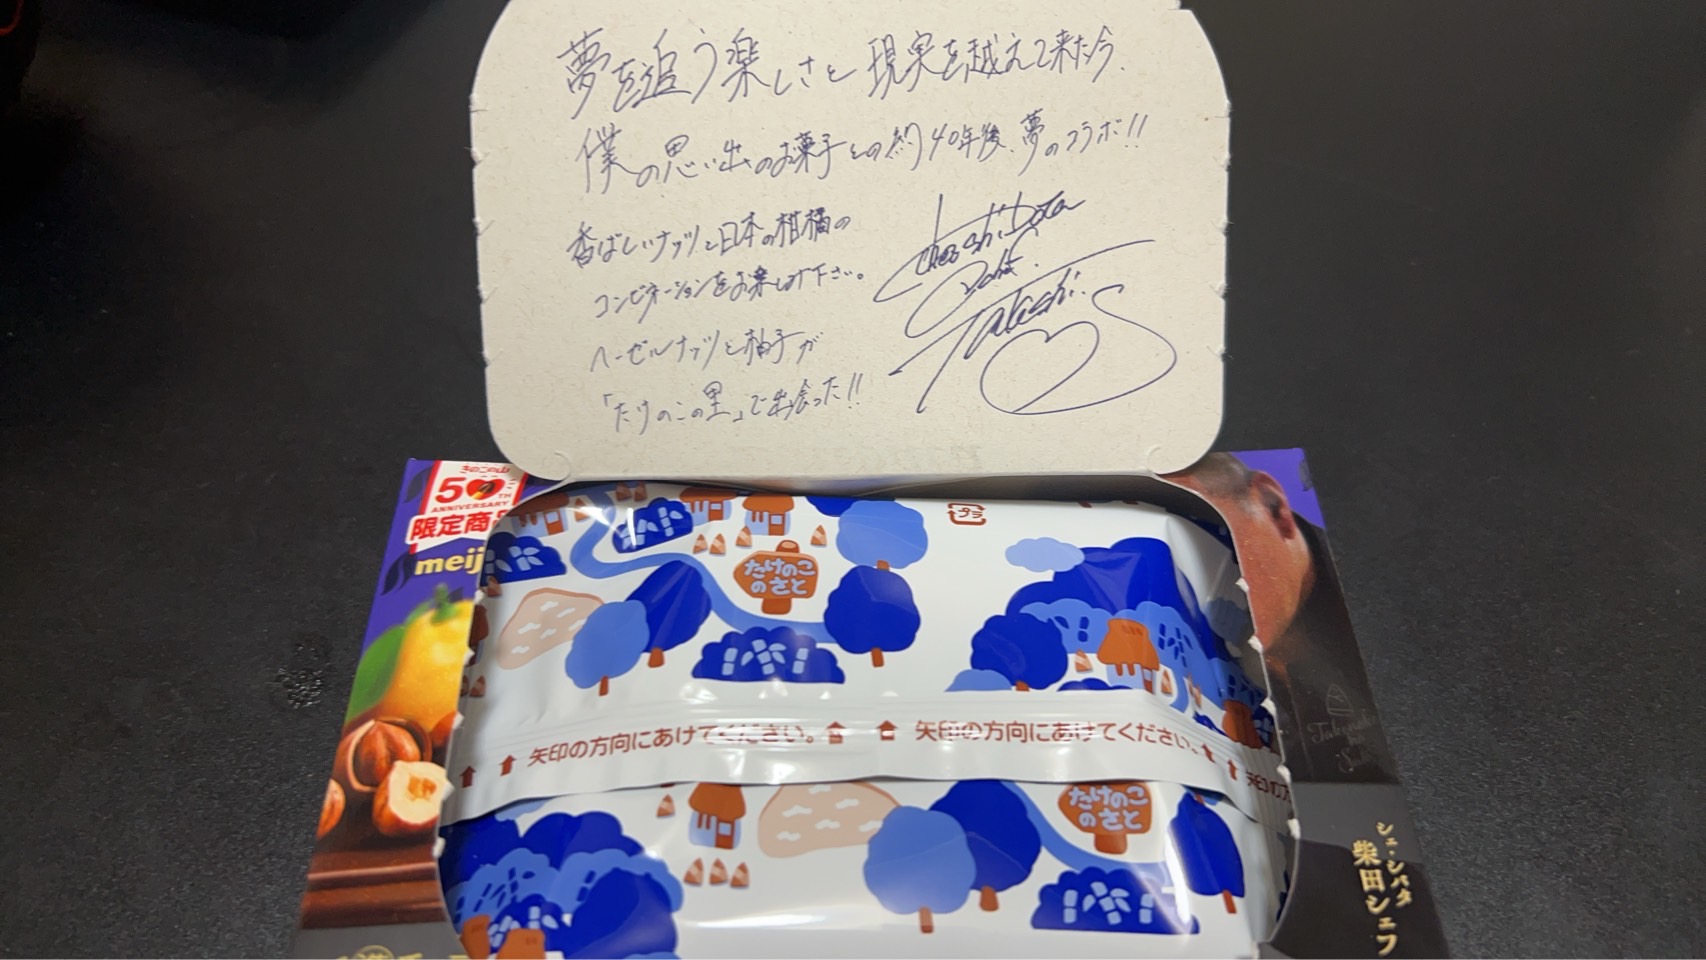 夢を追う楽しさと現実を越えて来た今、
僕の思い出のお菓子との約40年後、夢のコラボ!!
香ばしいナッツと日本の柑橘の
コンビネーションをお楽しみ下さい。
ヘーゼルナッツと柚子が
「たけのこの里」で出会った!!
Chez Shibata
Takashi.
きのこの山
50TH
ANNIVERSARY
限定商
meij
プラ
たけのこ
のさと
矢印の方向にあけてください。
矢印の方向にあけてください。
矢印の方
たけのこ
のさと
シェ・シバタ
柴田シェフ